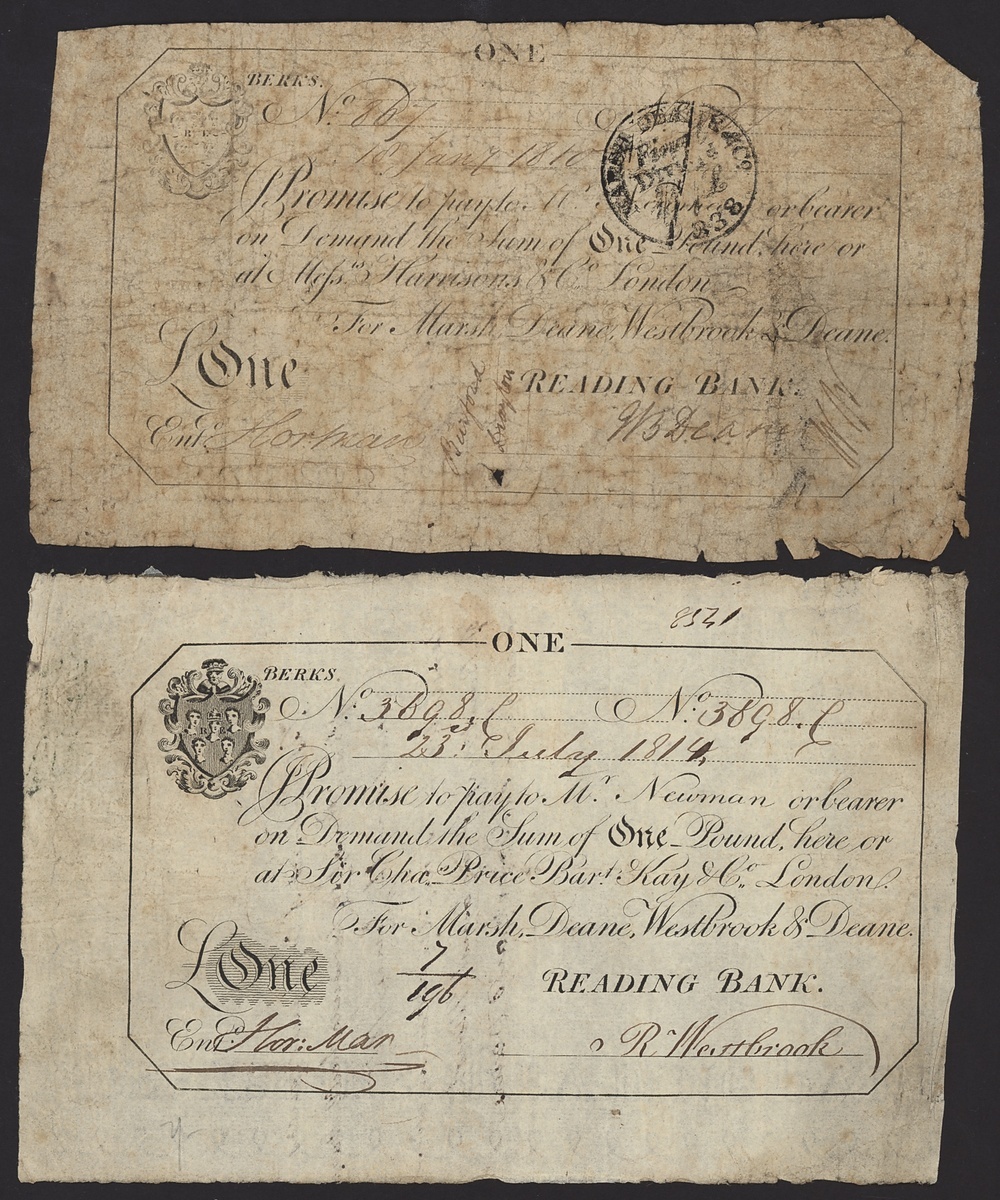 ONE
BERKS.
R B
No. 867
Jany 1810
MARSH DEANE & Co.
First
Divid
338
I Promise to pay to Mr. or bearer
on Demand the Sum of One Pound, here or
at Messrs. Harrisons & Co. London
For Marsh, Deane, Westbrook & Deane.
£One READING BANK.
Burford
Drayton
Entd. Horman WB Deane
ONE
8521
BERKS.
R B
No. 3898. No. 3898.
23d. July 1814
I Promise to pay to Mr. Newman or bearer
on Demand the Sum of One Pound, here or
at Sir Chas. Price Bart. Kay & Co. London.
For Marsh, Deane, Westbrook & Deane.
£One 7/196 READING BANK.
Entd. Hor: Man R Westbrook